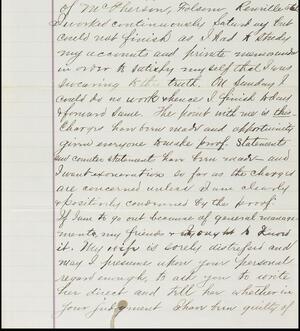 of McPherson, Folsom, Renville &c
I worked continuously Saturday but
could not finish as I had to study
my accounts and private memoranda
in order to satisfy my self that I was
swearing to the truth. On Sunday I
could do no work & hence I finish today
& forward same. The point with me is this—
Charges have been made and opportunity
given everyone to make proof. Statements
and counter statement have been made and
I want exoneration so far as the charges
are concerned unless I am clearly
& positively condemned by the proof.
If I am to go out because of general manage-
ment my friends & I ought to know
it. My wife is sorely distressed and
may I presume upon your personal
regard enough, to ask you to write
her direct and tell her whether in
your judgment I have been guilty of